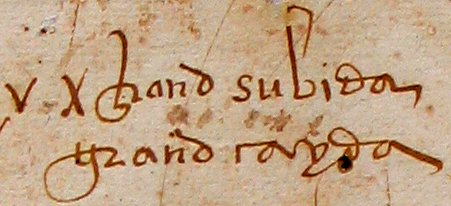 v X grand subida
grand cayda